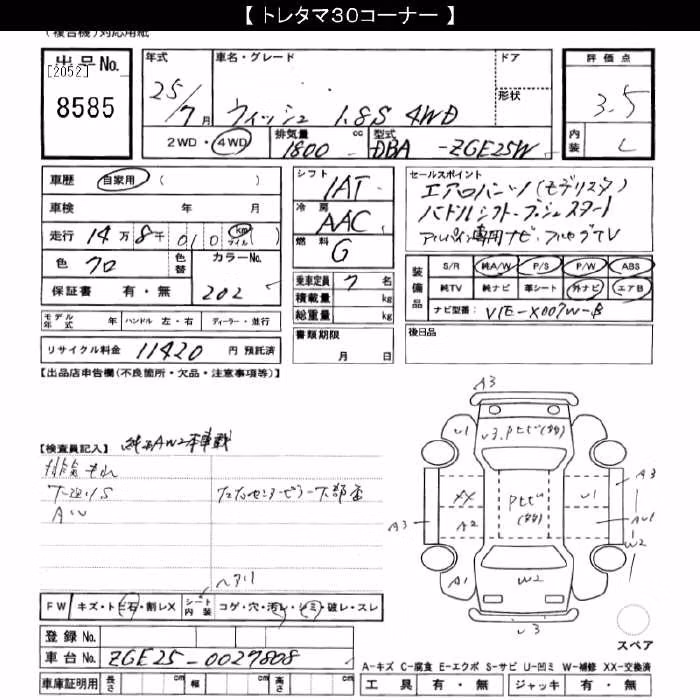 【 トレタマ30コーナー 】
(複合機)対応用紙
出品No.
[2052]
8585
年式 25/7月
車名・グレード ウィッシュ 1.8S 4WD
ドア
形状
評価点 3.5
内装 C
2WD・4WD 排気量 1800 cc 型式 DBA-ZGE25W
車歴 自家用 (
車検 年 月
走行 14万8千010 km マイル ( )
色 クロ 色替 カラーNo. 202
保証書 有・無
モデル年式 年 ハンドル 左・右 ディーラー・並行
リサイクル料金 11420 円 預託済
シフト IAT
冷房 AAC
燃料 G
乗車定員 7 名
積載量 kg
総重量 kg
書類期限
月 日
セールスポイント
エアロパーツ(モデリスタ)
パドルシフト・プッシュスタート
アルパイン専用ナビ・フルセグTV
装備品
S/R 純A/W P/S P/W ABS
純TV 純ナビ 革シート 外ナビ エアB
ナビ型番: VIE-X007W-B
後日品
【出品店申告欄(不良箇所・欠品・注意事項等)】
【検査員記入】 純正AW2本車載
排気もれ
下廻りS
AW
A3
U1
U3.Pとび(多)
XX
A2
Pとび
(多)
U1
A3
A3
AU1
W2
A1
W2
U3
スペア
ヘタリ
FW キズ・トビ石・割レX シート内装 コゲ・穴・汚レ・シミ・破レ・スレ
登録No.
車台No. ZGE25-0027808
車庫証明用 長さ cm 幅 cm 高さ cm
A-キズ C-腐食 E-エクボ S-サビ U-凹ミ W-補修 XX-交換済
工具 有・無 ジャッキ 有・無